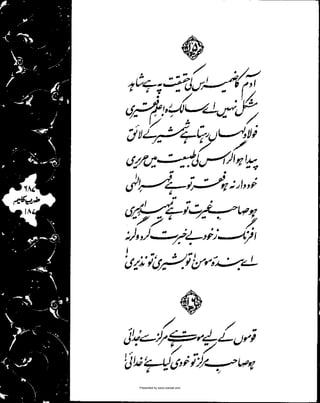 ۱۵
آدم کا ضمیر اس کی حقیقت پہ ہے شاہد
مشکل نہیں اے سالکِ رہ! علمِ فقیری
فولاد کہاں رہتا ہے شمشیر کے لائق
پیدا ہو اگر اس کی طبیعت میں حریری
خود دار نہ ہو فقر تو ہے قہرِ الٰہی
ہو صاحبِ غیرت تو ہے تمہیدِ امیری
افرنگ ز خود بے خبرت کرد وگرنہ
اے بندۂ مومن! تو بشیری، تو نذیری!
۱۶
قوموں کے لیے موت ہے مرکز سے جدائی
ہو صاحبِ مرکز تو خودی کیا ہے، خدائی!
۶۸۷
ضربِ کلیم
۱۸۷
Presented by www.iqbalcyberlibrary.net